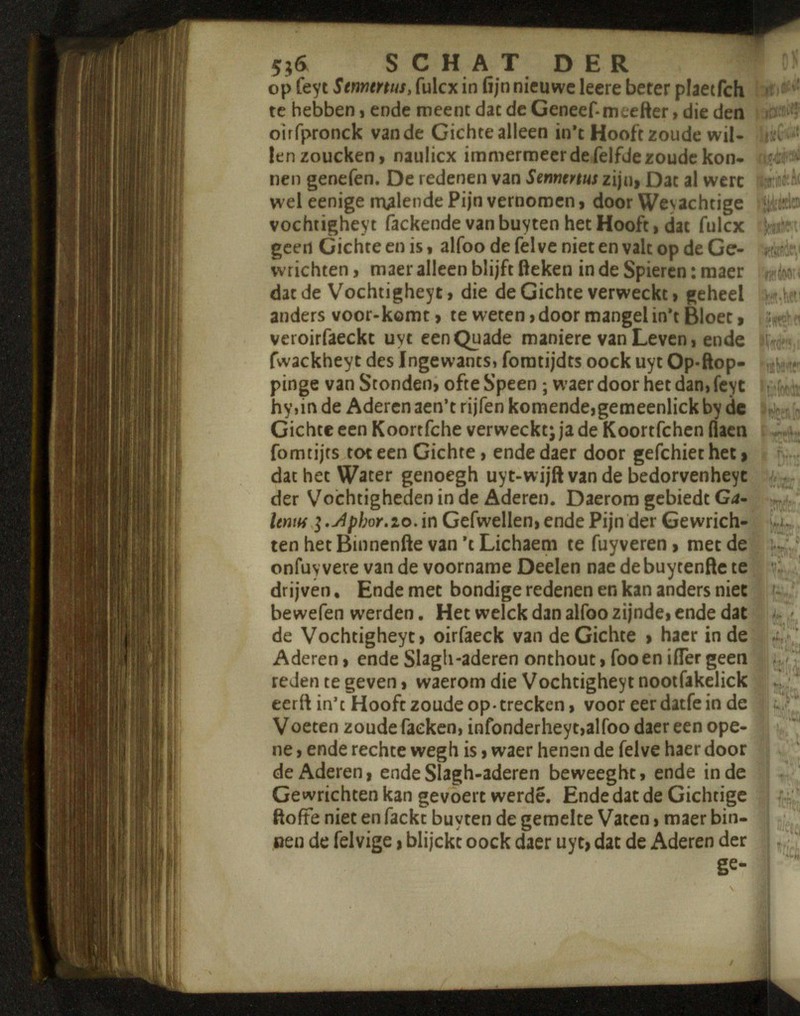 536 SCHAT DER
op ſeyt Sennertus, ſulcx in ſijn nieuwe leere beter plaetſch
te hebben, ende meent dat de Geneeſ-meeſter, die den
oirſpronck vande Gichte alleen in't Hooft zoude wil-
len zoucken, naulicx immermeer de ſelfde zoude kon-
nen geneſen. De redenen van Sennertus zijn, Dat al wert
wel eenige malende Pijn vernomen, door Weyachtige
vochtigheyt ſackende van buyten het Hooft, dat ſulcx
geen Gichte en is, alſoo de ſelve niet en valt op de Ge-
wrichten, maer alleen blijft ſteken in de Spieren: maer
dat de Vochtigheyt, die de Gichte verweckt, geheel
anders voor-komt, te weten, door mangel in't Bloet,
veroirſaeckt uyt een Quade maniere van Leven, ende
ſwackheyt des Ingewants, ſomtijdts oock uyt Op-ſtop-
pinge van Stonden, ofte Speen; waer door het dan, ſeyt
hy, in de Aderen aen't rijſen komende, gemeenlick by de
Gichte een Koortſche verweckt; ja de Koortſchen ſlaen
ſomtijts tot een Gichte, ende daer door geſchiet het,
dat het Water genoegh uyt-wijſt van de bedorvenheyt
der Vochtigheden in de Aderen. Daerom gebiedt Ga-
lenus 3. Aphor. 20. in Geſwellen, ende Pijn der Gewrich-
ten het Binnenſte van 't Lichaem te ſuyveren, met de
onſuyvere van de voorname Deelen nae de buytenſte te
drijven. Ende met bondige redenen en kan anders niet
beweſen werden. Het welck dan alſoo zijnde, ende dat
de Vochtigheyt, oirſaeck van de Gichte, haer in de
Aderen, ende Slagh-aderen onthout, ſoo en iſſer geen
reden te geven, waerom die Vochtigheyt nootſakelick
eerſt in't Hooft zoude op-trecken, voor eer datſe in de
Voeten zoude ſacken, inſonderheyt, alſoo daer een ope-
ne, ende rechte wegh is, waer henen de ſelve haer door
de Aderen, ende Slagh-aderen beweeght, ende in de
Gewrichten kan gevoert werdẽ. Ende dat de Gichtige
ſtoffe niet en ſackt buyten de gemelte Vaten, maer bin-
nen de ſelvige, blijckt oock daer uyt, dat de Aderen der
ge-